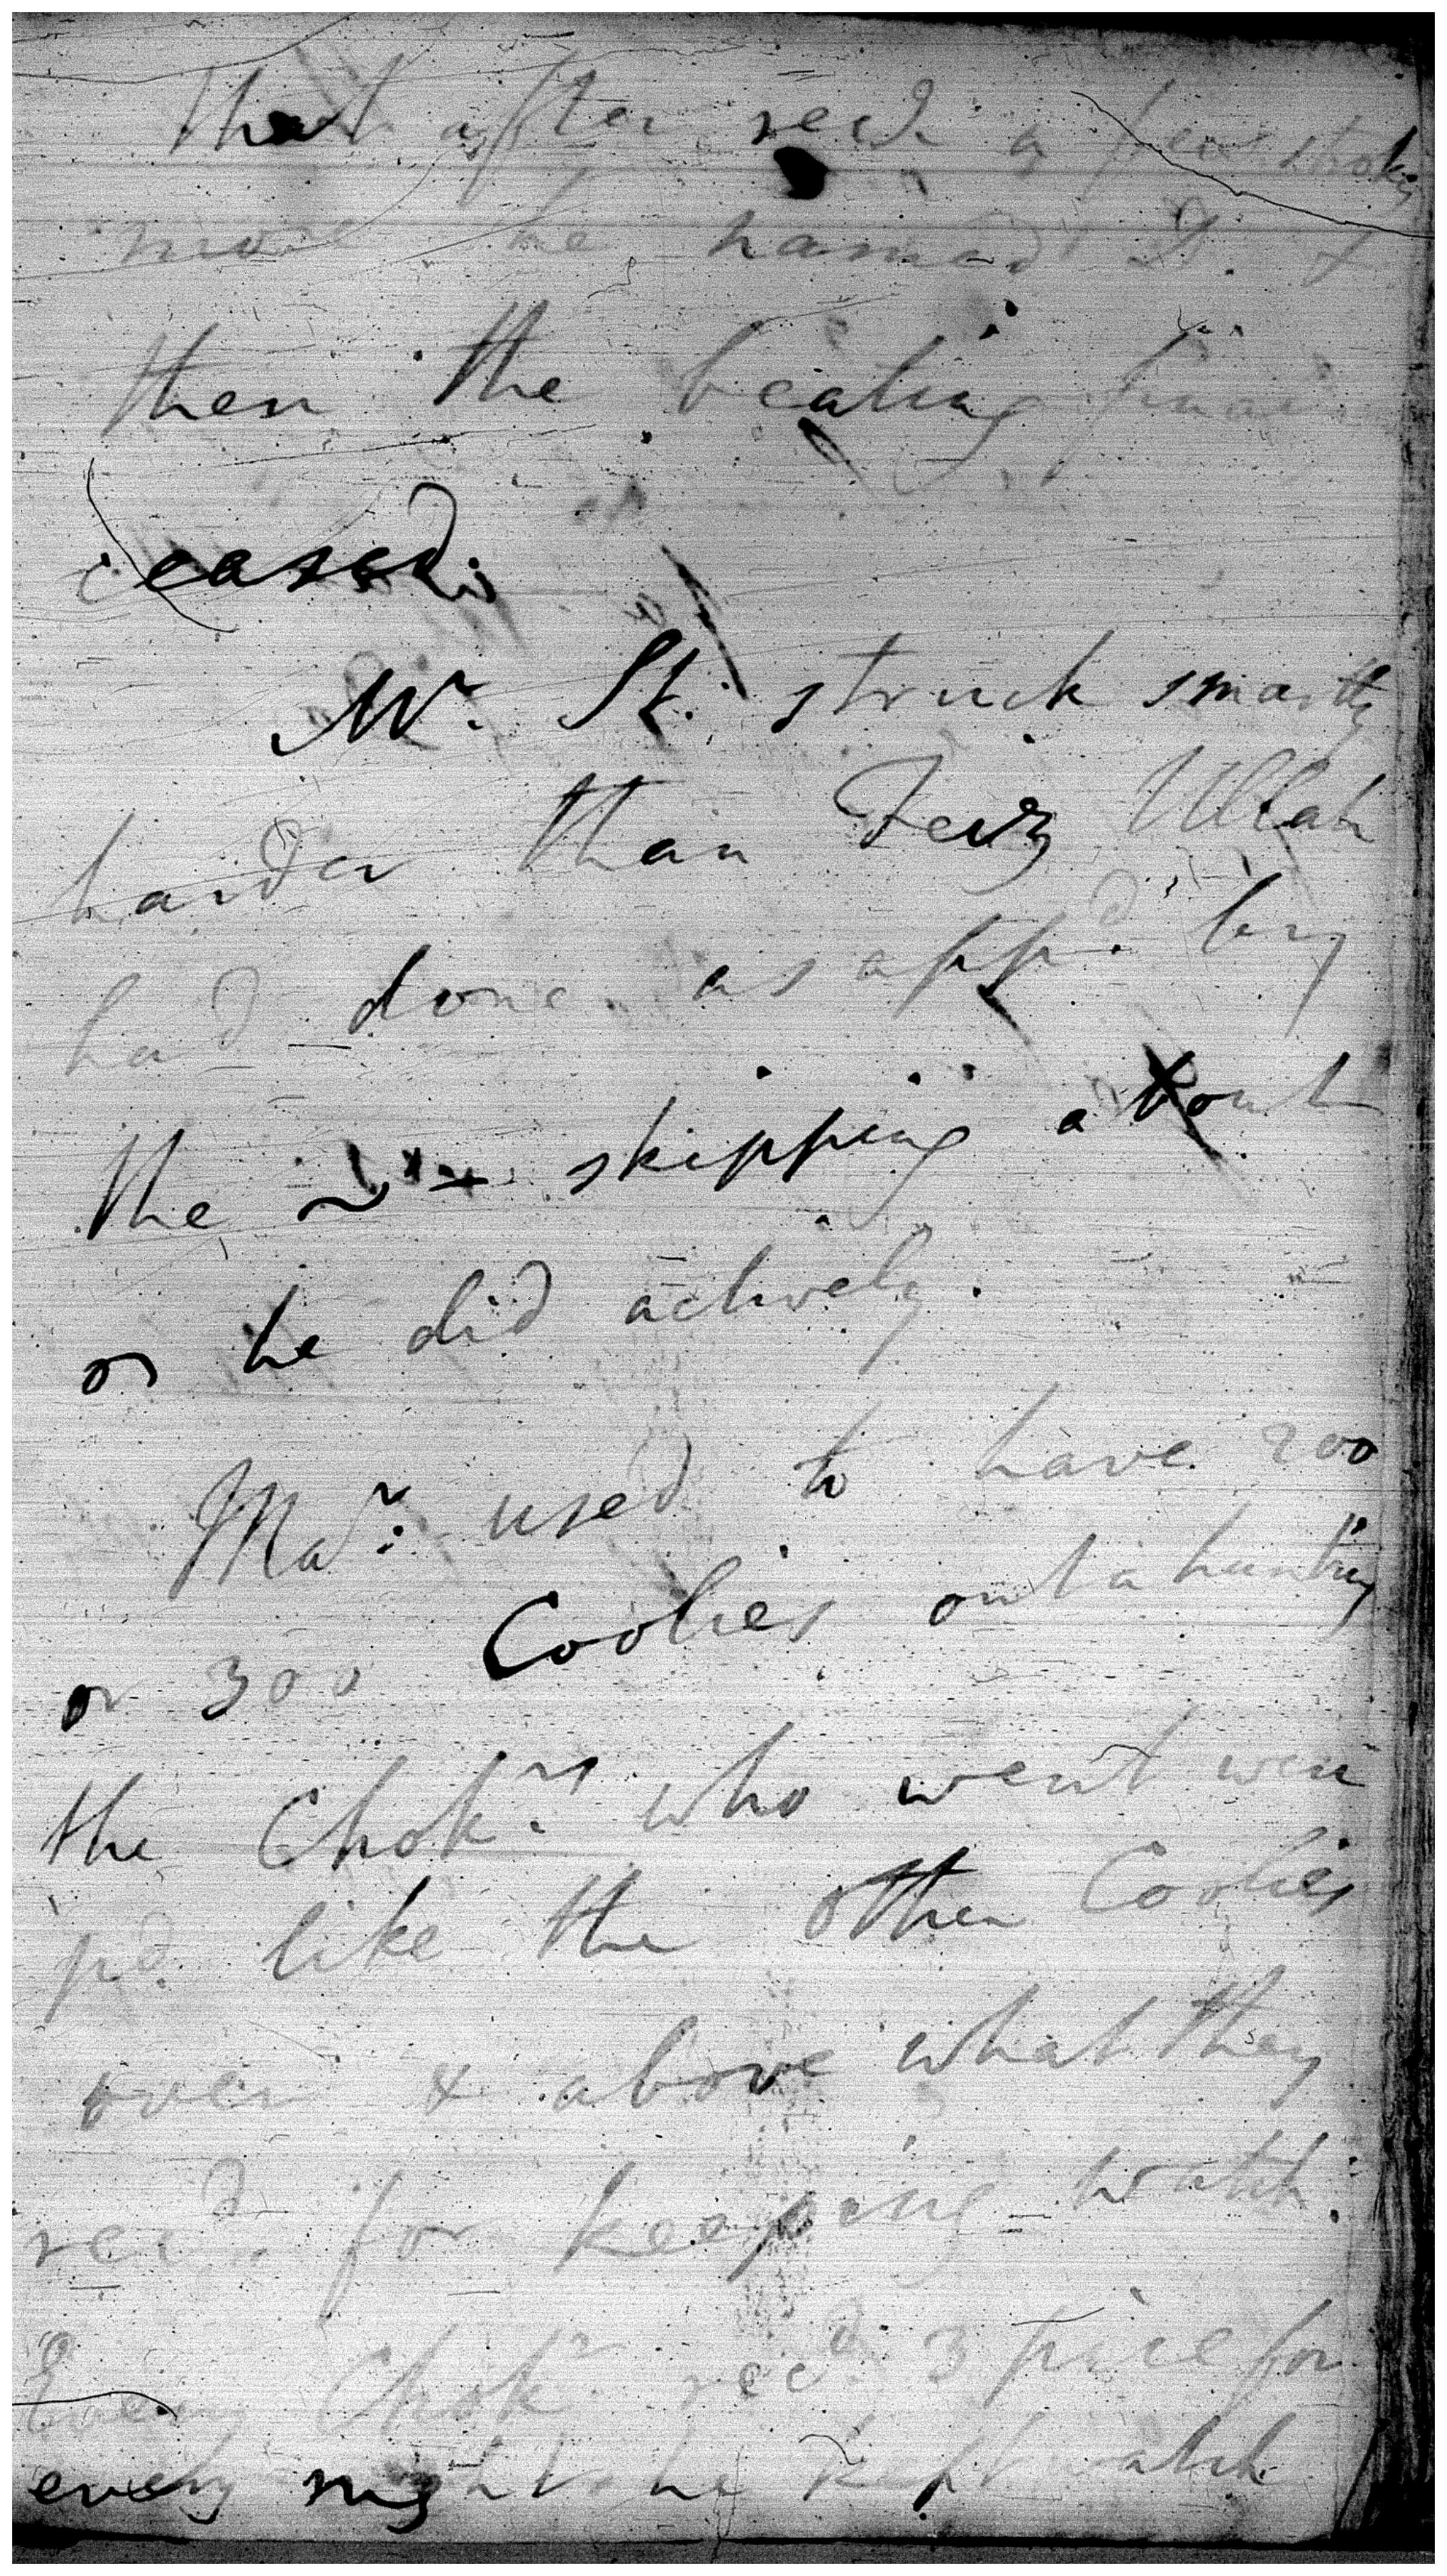 that after recd a few strokes
more he named it. &
then the beating
ceased.
Mr. St. struck smartly
harder than Feiz Ullah
had done as appd. by
the skipping about
or he did actively.
Mar. used to have 200
or 300 Coolies out a hunting
the Chokrs. who went were
pd. like the other Coolies
over & above what they
recd. for keeping watch.
Every Chokr. recd. 3 pice for
every night he kept watch